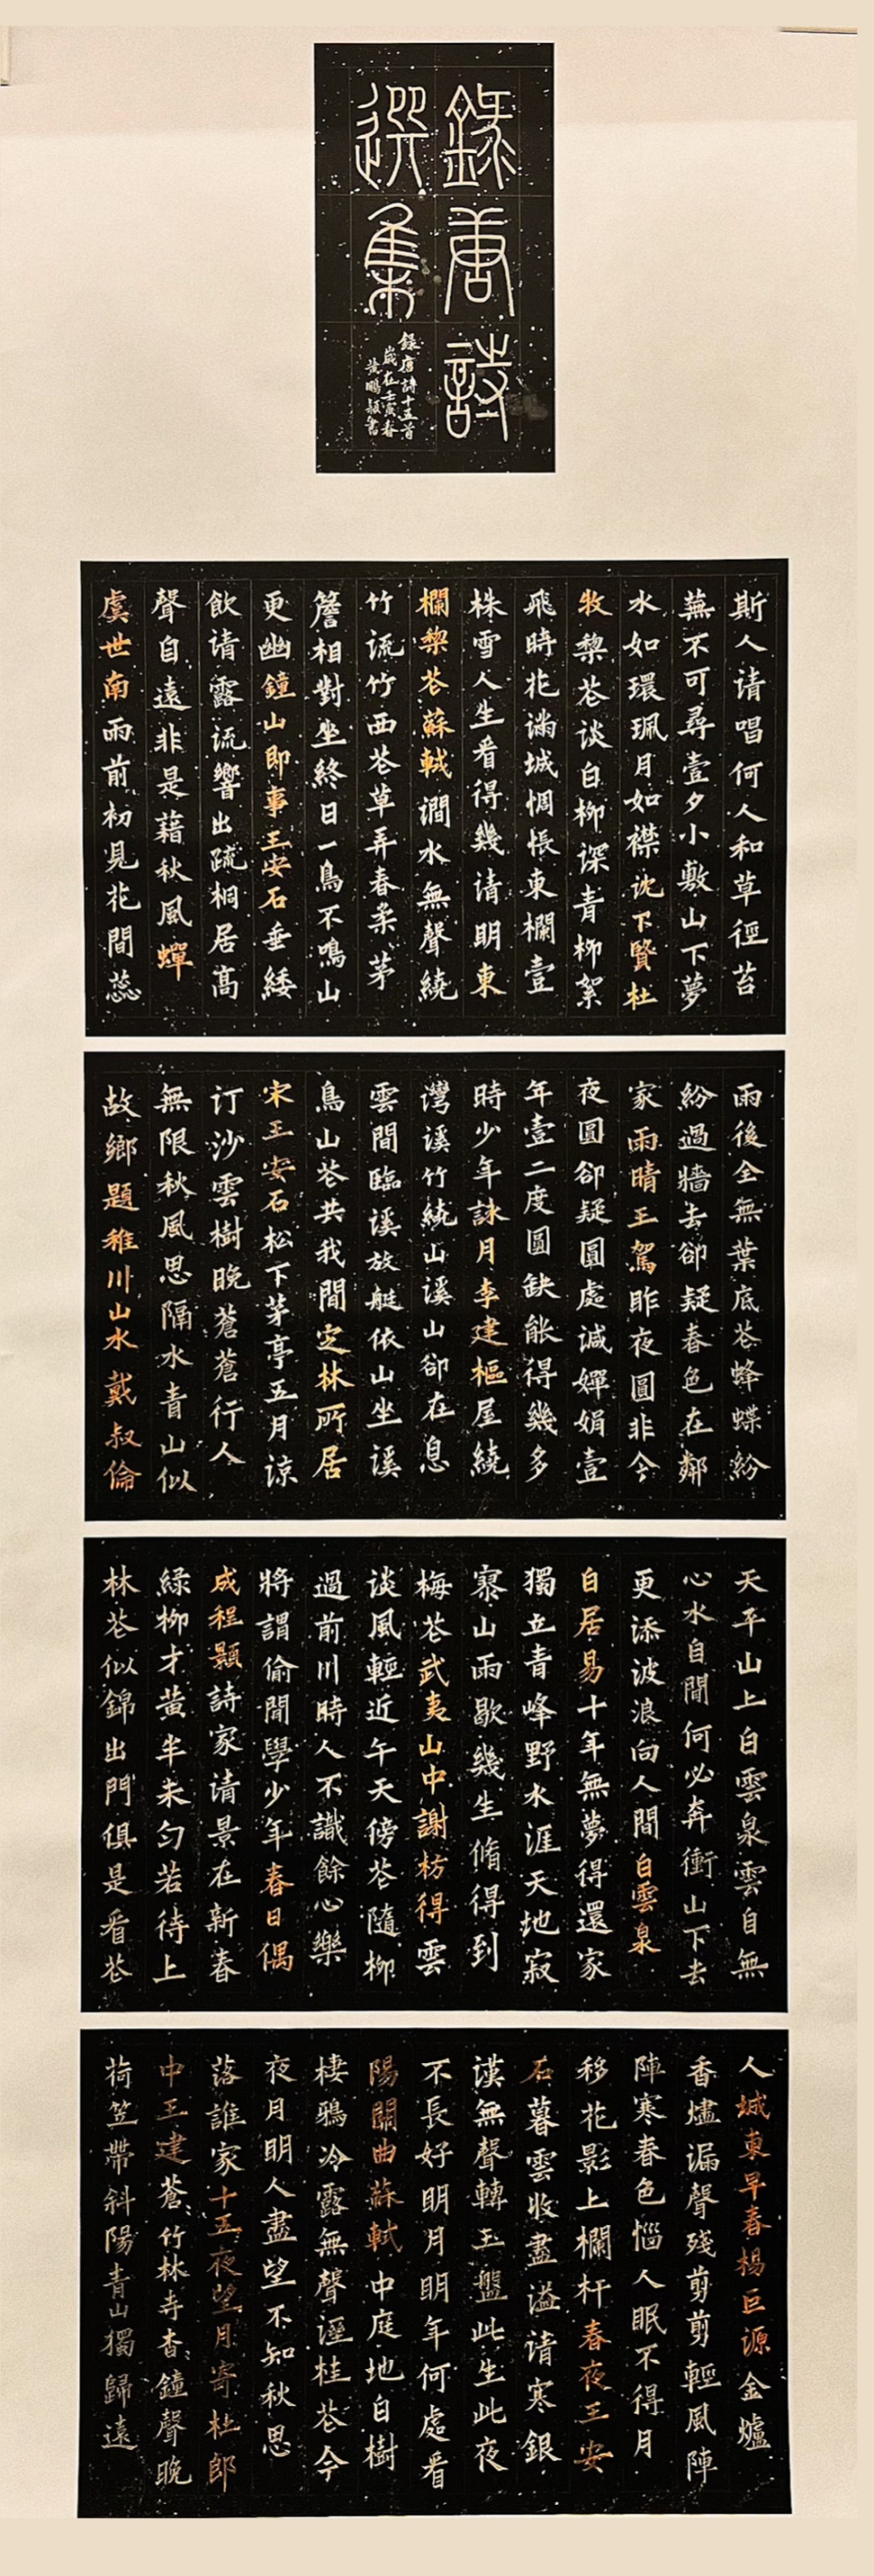 錄唐詩
選集
錄唐詩十五首
歲在壬寅春
黃鵬穎書
斯人请唱何人和草徑苔
蕪不可尋壹夕小敷山下夢
水如環珮月如襟沈下賢杜
牧棃苍谈白柳深青柳絮
飛時花滿城惆悵東欄壹
株雪人生看得幾清明東
欄棃苍蘇軾澗水無聲繞
竹流竹西苍草弄春柔茅
簷相對坐終日一鳥不鳴山
更幽鐘山即事王安石垂緌
飲请露流響出疏桐居高
聲自遠非是藉秋風蟬
虞世南雨前初見花間蕊
雨後全無葉底苍蜂蝶紛
紛過牆去卻疑春色在鄰
家雨晴王駕昨夜圓非今
夜圓卻疑圓處減嬋娟壹
年壹二度圓缺能得幾多
時少年詠月李建樞屋繞
灣溪竹繞山溪山卻在息
雲間臨溪放艇依山坐溪
鳥山苍共我閒定林所居
宋王安石松下茅亭五月涼
汀沙雲樹晚蒼蒼行人
無限秋風思隔水青山似
故鄉題稚川山水戴叔倫
天平山上白雲泉雲自無
心水自閒何必奔衝山下去
更添波浪向人間白雲泉
白居易十年無夢得還家
獨立青峰野水涯天地寂
寥山雨歇幾生脩得到
梅苍武夷山中謝枋得雲
淡風輕近午天傍苍隨柳
過前川時人不識餘心樂
將謂偷閒學少年春日偶
成程顥詩家请景在新春
綠柳才黃半未勻若待上
林苍似錦出門俱是看苍
人城東早春楊巨源金爐
香燼漏聲殘剪剪輕風陣
陣寒春色惱人眠不得月
移花影上欄杆春夜王安
石暮雲收盡溢请寒銀
漢無聲轉玉盤此生此夜
不長好明月明年何處看
陽關曲蘇軾中庭地白樹
棲鴉冷露無聲溼桂苍今
夜月明人盡望不知秋思
落誰家十五夜望月寄杜郎
中王建蒼蒼竹林寺杳杳鐘聲晚
荷笠帶斜陽青山獨歸遠